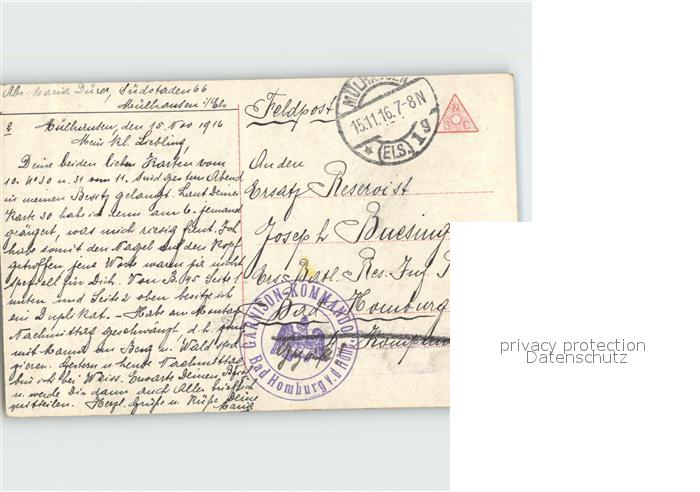 Abs. Maria Dürer, Südstaden 66
Mülhausen i/Els
Feldpost
MÜLHAUSEN
15.11.16. 7-8 N
(ELS.)
1g
Mülhausen, den 15. Nov 1916
Mein kl. Liebling,
Deine beiden lieben Karten vom
10. No 30 u. 31 vom 11. sind gestern Abend
in meinen Besitz gelangt. Laut Deiner
Karte 30 hab ich denn am 6. jemand
geärgert, was mich riesig freut. Ich
habe somit den Nagel auf den Kopf
getroffen, jene Worte waren ja nicht
speziell für Dich. Von B. 95 Seite 1
unten und Seite 2 oben besitze ich
ein Duplikat. - Habe am Montag
Nachmittag geschwänzt d. h. ging
mit Mama am Berg u. Wald
gieren. Gestern u. heut Nachmittag
bin ich bei Weiss. Erwarte Deinen Brief
u. werde Dir dann auch Alles brieflich
mitteilen. Herzl. Grüße u. Küße Deine
Maria
An den
Ersatz Reservist
Joseph Buesing
Ers. Batl. Res. Inf.
Bad Homburg
Komp
GARNISON-KOMMANDO
Bad Homburg v. d. Höhe
privacy protection
Datenschutz